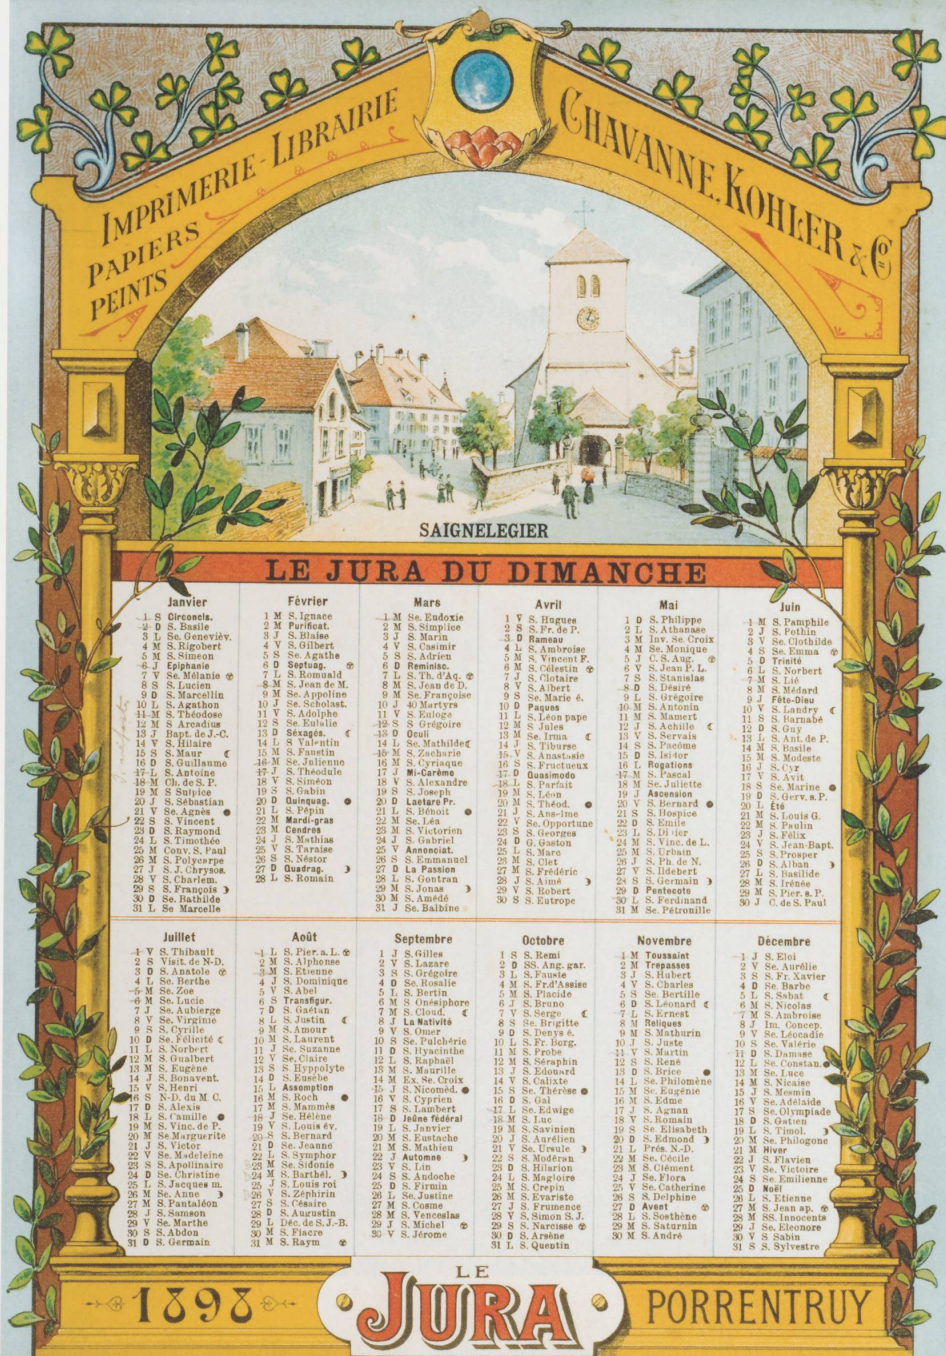 IMPRIMERIE-LIBRAIRIE
PAPIERS
PEINTS
CHAVANNE, KOHLER & Co
SAIGNELEGIER
LE JURA DU DIMANCHE
Janvier
1 S Circoncis.
2 D S. Basile
3 L Se. Genevièv.
4 M S. Rigobert
5 M S. Simeon
6 J Epiphanie
7 V Se. Mélanie
8 S S. Lucien
9 D S. Marcellin
10 L S. Agathon
11 M S. Théodose
12 M S. Arcadius
13 J Bapt. de J.-C.
14 V S. Hilaire
15 S S. Maur
16 D S. Guillaume
17 L S. Antoine
18 M Ch. de S. P.
19 M S. Sulpice
20 J S. Sébastian
21 V Se. Agnès
22 S S. Vincent
23 D S. Raymond
24 L S. Timothée
25 M Conv. S. Paul
26 M S. Polycarpe
27 J S. J. Chrysos.
28 V S. Charlem.
29 S S. François
30 D Se. Bathilde
31 L Se Marcelle
Février
1 M S. Ignace
2 M Purificat.
3 J S. Blaise
4 V S. Gilbert
5 S Se. Agathe
6 D Septuag.
7 L S. Romuald
8 M S. Jean de M.
9 M Se. Appoline
10 J Se. Scholast.
11 V S. Adolphe
12 S Se. Eulalie
13 D Séxagés.
14 L S Valentin
15 M S. Faustin
16 M Se. Julienne
17 J S. Théodule
18 V S. Siméon
19 S S. Gabin
20 D Quinquag.
21 L S. Pépin
22 M Mardi-gras
23 M Cendres
24 J S. Mathias
25 V S. Taraise
26 S S. Néstor
27 D Quadrag.
28 L S. Romain
Mars
1 M Se. Eudoxie
2 M S. Simplice
3 J S. Marin
4 V S. Casimir
5 S S. Adrien
6 D Reminisc.
7 L S. Th. d'Aq.
8 M S. Jean de D.
9 M Se. Françoise
10 J 40 Martyrs
11 V S. Euloge
12 S S. Grégoire
13 D Oculi
14 L Se. Mathilde
15 M S. Zacharie
16 M S. Cyriaque
17 J Mi-Carême
18 V S. Alexandre
19 S S. Joseph
20 D Laetare Pr.
21 L S. Bénoit
22 M Se. Léa
23 M S. Victorien
24 J S. Gabriel
25 V Annonciat.
26 S S. Emmanuel
27 D La Passion
28 L S. Gontran
29 M S. Jonas
30 M S. Amédé
31 J Se. Balbine
Avril
1 V S. Hugues
2 S S. Fr. de P.
3 D Rameau
4 L S. Ambroise
5 M S. Vincent F.
6 M S. Célestin
7 J S. Clotaire
8 V S. Albert
9 S Se. Marie é.
10 D Paques
11 L S. Léon pape
12 M S. Jules
13 M Se. Irma
14 J S. Tiburse
15 V S. Anastasie
16 S S. Fructueux
17 D Quasimodo
18 L S. Parfait
19 M S. Léon
20 M S. Théod.
21 J S. Ans-lme
22 V Se. Opportune
23 S S. Georges
24 D G. Gaston
25 L S. Marc
26 M S. Clet
27 M S. Frédéric
28 J S. Aimé
29 V S. Robert
30 S S. Eutrope
Mai
1 D S. Philippe
2 L S. Athanase
3 M Inv. Se. Croix
4 M Se. Monique
5 J C. S. Aug.
6 V S. Jean P. L.
7 S S. Stanislas
8 D S. Désiré
9 L S. Grégoire
10 M S. Antonin
11 M S. Mamert
12 J S. Achille
13 V S. Servais
14 S S. Pacôme
15 D S. Isidor
16 L Rogations
17 M S. Pascal
18 M Se. Juliette
19 J Ascension
20 V S. Bernard
21 S S. Hospice
22 D S. Emile
23 L S. Didier
24 M S. Vinc. de L.
25 M S. Urbain
26 J S. Ph. de N.
27 V S. Ildebert
28 S S. Germain
29 D Pentecote
30 L S. Ferdinand
31 M Se. Pétronille
Juin
1 M S. Pamphile
2 J S. Pothin
3 V Se. Clothilde
4 S Se. Emma
5 D Trinité
6 L S. Norbert
7 M S. Lié
8 M S. Médard
9 J Fête-Dieu
10 V S. Landry
11 S S. Barnabé
12 D S. Guy
13 L S. Ant. de P.
14 M S. Basile
15 M S. Modeste
16 J S. Cyr
17 V S. Avit
18 S Se. Marine
19 D S. Gerv. s. P.
20 L Été
21 M S. Louis G.
22 M S. Paulin
23 J S. Félix
24 V S. Jean-Bapt.
25 S S. Prosper
26 D S. Alban
27 L S. Basilide
28 M S. Irénée
29 M S. Pier. s. P.
30 J C. de S. Paul
Juillet
1 V S. Thibault
2 S Visit. de N-D.
3 D S. Anatole
4 L Se. Berthe
5 M Se. Zoe
6 M Se. Lucie
7 J Se. Aubierge
8 V Se. Virginie
9 S S. Cyrille
10 D Se. Félicité
11 L S. Norbert
12 M S. Gualbert
13 M S. Eugène
14 J S. Bonavent.
15 V S. Henri
16 S N-D. du M. C.
17 D S. Alexis
18 L S. Camille
19 M S. Vinc. de P.
20 M Se Marguerite
21 J S. Victor
22 V Se. Madeleine
23 S S. Apollinaire
24 D Se. Christine
25 L S. Jacques m.
26 M Se. Anne
27 M S. Pantaléon
28 J S. Samson
29 V Se. Marthe
30 S S. Abdon
31 D S. Germain
Août
1 L S. Pier. a. L.
2 M S. Alphonse
3 M S. Etienne
4 J S. Dominique
5 V S. Abel
6 S Transfigur.
7 D S. Gaëtan
8 L S. Justin
9 M S. Amour
10 M S. Laurent
11 J Se. Suzanne
12 V Se. Claire
13 S S. Hyppolyte
14 D S. Eusèbe
15 L Assomption
16 M S. Roch
17 M S. Mammès
18 J Se. Hélène
19 V S. Louis év.
20 S S. Bernard
21 D Se. Jeanne
22 L S. Symphor
23 M Se. Sidonie
24 M S. Barthél.
25 J S. Louis roi
26 V S. Zéphirin
27 S S. Césaire
28 D S. Augustin
29 L Déc. de S. J.-B.
30 M S. Fiacre
31 M S. Raym
Septembre
1 J S. Gilles
2 V S. Lazare
3 S S. Grégoire
4 D Se. Rosalie
5 L S. Bertin
6 M S. Onésiphore
7 M S. Cloud.
8 J La Nativité
9 V S. Omer
10 S Se. Pulchérie
11 D S. Hyacinthe
12 L S. Raphaël
13 M S. Maurille
14 M Ex. Se. Croix
15 J S. Nicoméd.
16 V S. Cyprien
17 S S. Lambert
18 D Jeûne fédéral
19 L S. Janvier
20 M S. Eustache
21 M S. Mathieu
22 J Automne
23 V S. Lin
24 S S. Andoche
25 D S. Firmin
26 L Se. Justine
27 M S. Cosme
28 M S. Venceslas
29 J S. Michel
30 V S. Jérome
Octobre
1 S S. Remi
2 D SS. Ang. gar.
3 L S. Fauste
4 M S. Fr. d'Assise
5 M S. Placide
6 J S. Bruno
7 V S. Serge
8 S Se. Brigitte
9 D S. Denys é.
10 L S. Fr. Borg.
11 M S. Probe
12 M S. Séraphin
13 J S. Edouard
14 V S. Calixte
15 S Se. Thérèse
16 D S. Gal
17 L Se. Edwige
18 M S. Luc
19 M S. Savinien
20 J S. Aurélien
21 V Se. Ursule
22 S S. Modéran
23 D S. Hilarion
24 L S. Magloire
25 M S. Crepin
26 M S. Evariste
27 J S. Frumence
28 V S. Simon S. J.
29 S S. Narcisse
30 D S. Arsène
31 L S. Quentin
Novembre
1 M Toussaint
2 M Trepasses
3 J S. Hubert
4 V S. Charles
5 S Se. Bertille
6 D S. Léonard
7 L S. Ernest
8 M Reliques
9 M S. Mathurin
10 J S. Juste
11 V S. Martin
12 S S. René
13 D S. Brice
14 L Se. Philomène
15 M Se. Eugénie
16 M S. Edme
17 J S. Agnan
18 V S. Romain
19 S Se. Elisabeth
20 D S. Edmond
21 L Prés. N.-D.
22 M Se. Cécile
23 M S. Clément
24 J Se. Flora
25 V Se. Catherine
26 S S. Delphine
27 D Avent
28 L S. Sosthène
29 M S. Saturnin
30 M S. André
Décembre
1 J S. Eloi
2 V Se. Aurélie
3 S S. Fr. Xavier
4 D Se. Barbe
5 L S. Sabat
6 M S. Nicolas
7 M S. Ambroise
8 J Im. Concep.
9 V Se. Léocadie
10 S Se. Valérie
11 D S. Damase
12 L Se. Constan.
13 M Se. Luce
14 M S. Nicaise
15 J S. Mesmin
16 V Se. Adélaide
17 S Se. Olympiade
18 D S. Gatien
19 L S. Timol.
20 M Se. Philogone
21 M Hiver
22 J S. Flavien
23 V Se. Victoire
24 S Se. Emilienne
25 D Noël
26 L S. Etienne
27 M S. Jean ap.
28 M SS. Innocents
29 J Se. Eleonore
30 V S. Sabin
31 S S. Sylvestre
1898
LE
JURA
PORRENTRUY